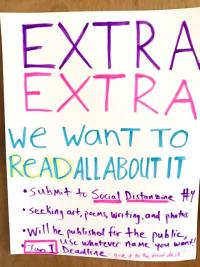 EXTRA
EXTRA
WE WANT TO
READ ALL ABOUT IT
• Submit to Social Distanzine #4
• seeking art, poems, writing, and photos
• Will be published for the public,
use whatever name you want!
Jan 1 Deadline - give it to the front desk!